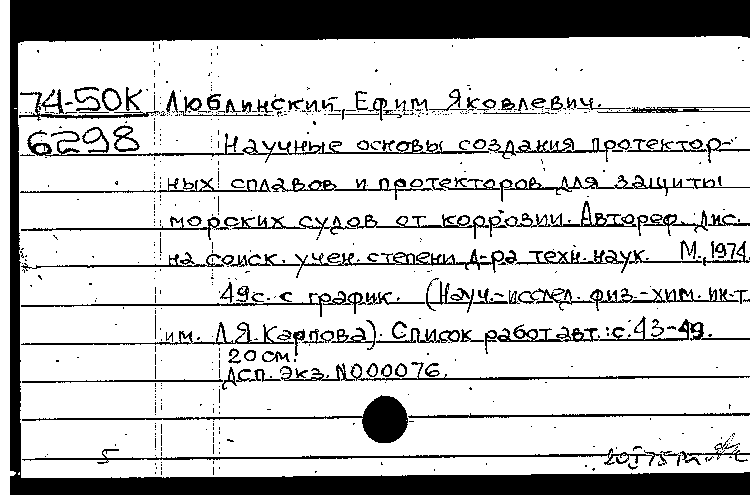 74-50К Люблинский, Ефим Яковлевич.
6298 Научные основы создания протектор-
ных сплавов и протекторов для защиты
морских судов от коррозии. Автореф. дис.
на соиск. учен. степени д-ра техн. наук. М., 1974.
49с. с график. (Науч.-исслед. физ.-хим. ин-т
им. Л.Я. Карпова). Список работ авт.: с. 43-49.
20 см.
ДСП. Экз. N000076.
5 20 I 75